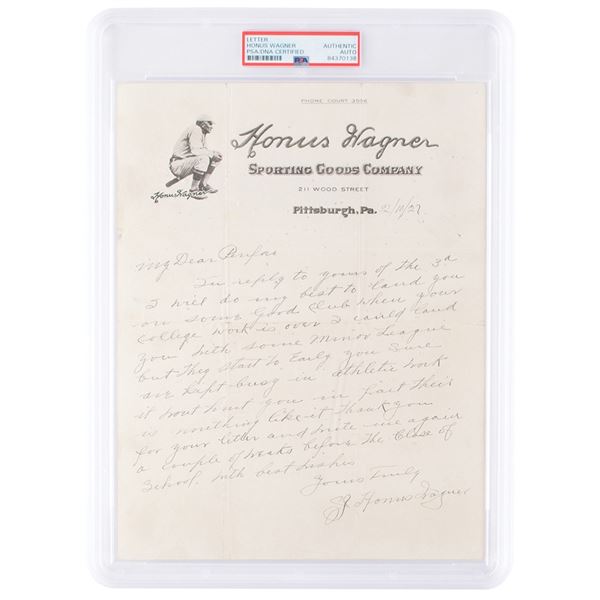 LETTER
HONUS WAGNER
PSA/DNA CERTIFIED
AUTHENTIC
AUTO
84370138
PSA
PHONE COURT 3556
Honus Wagner
SPORTING GOODS COMPANY
211 WOOD STREET
Pittsburgh, Pa. 2/10/27
Honus Wagner
My Dear
In reply to yours of the 3rd
I will do my best to land you
on some Good Club when your
College work is over I could land
you with some Minor League
but they start to Early you sure
are kept busy in athletic work
it wont hurt you in fact their
is nouthing like it thank you
for your letter and write me again
a couple of weeks before the Close of
School. with best wishes
Yours Truly
J Honus Wagner